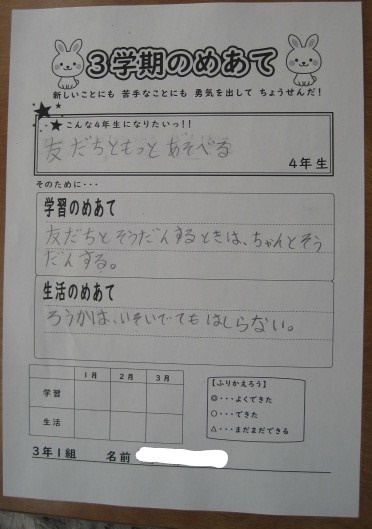 3学期のめあて
新しいことにも 苦手なことにも 勇気を出して ちょうせんだ！
こんな4年生になりたいっ！！
友だちともっとあそべる
4年生
そのために・・・
学習のめあて
友だちとそうだんするときは、ちゃんとそう
だんする。
生活のめあて
ろうかは、いそいでてもはしらない。
1月 2月 3月
学習
生活
【ふりかえろう】
◎・・・よくできた
○・・・できた
△・・・まだまだできる
3年1組 名前